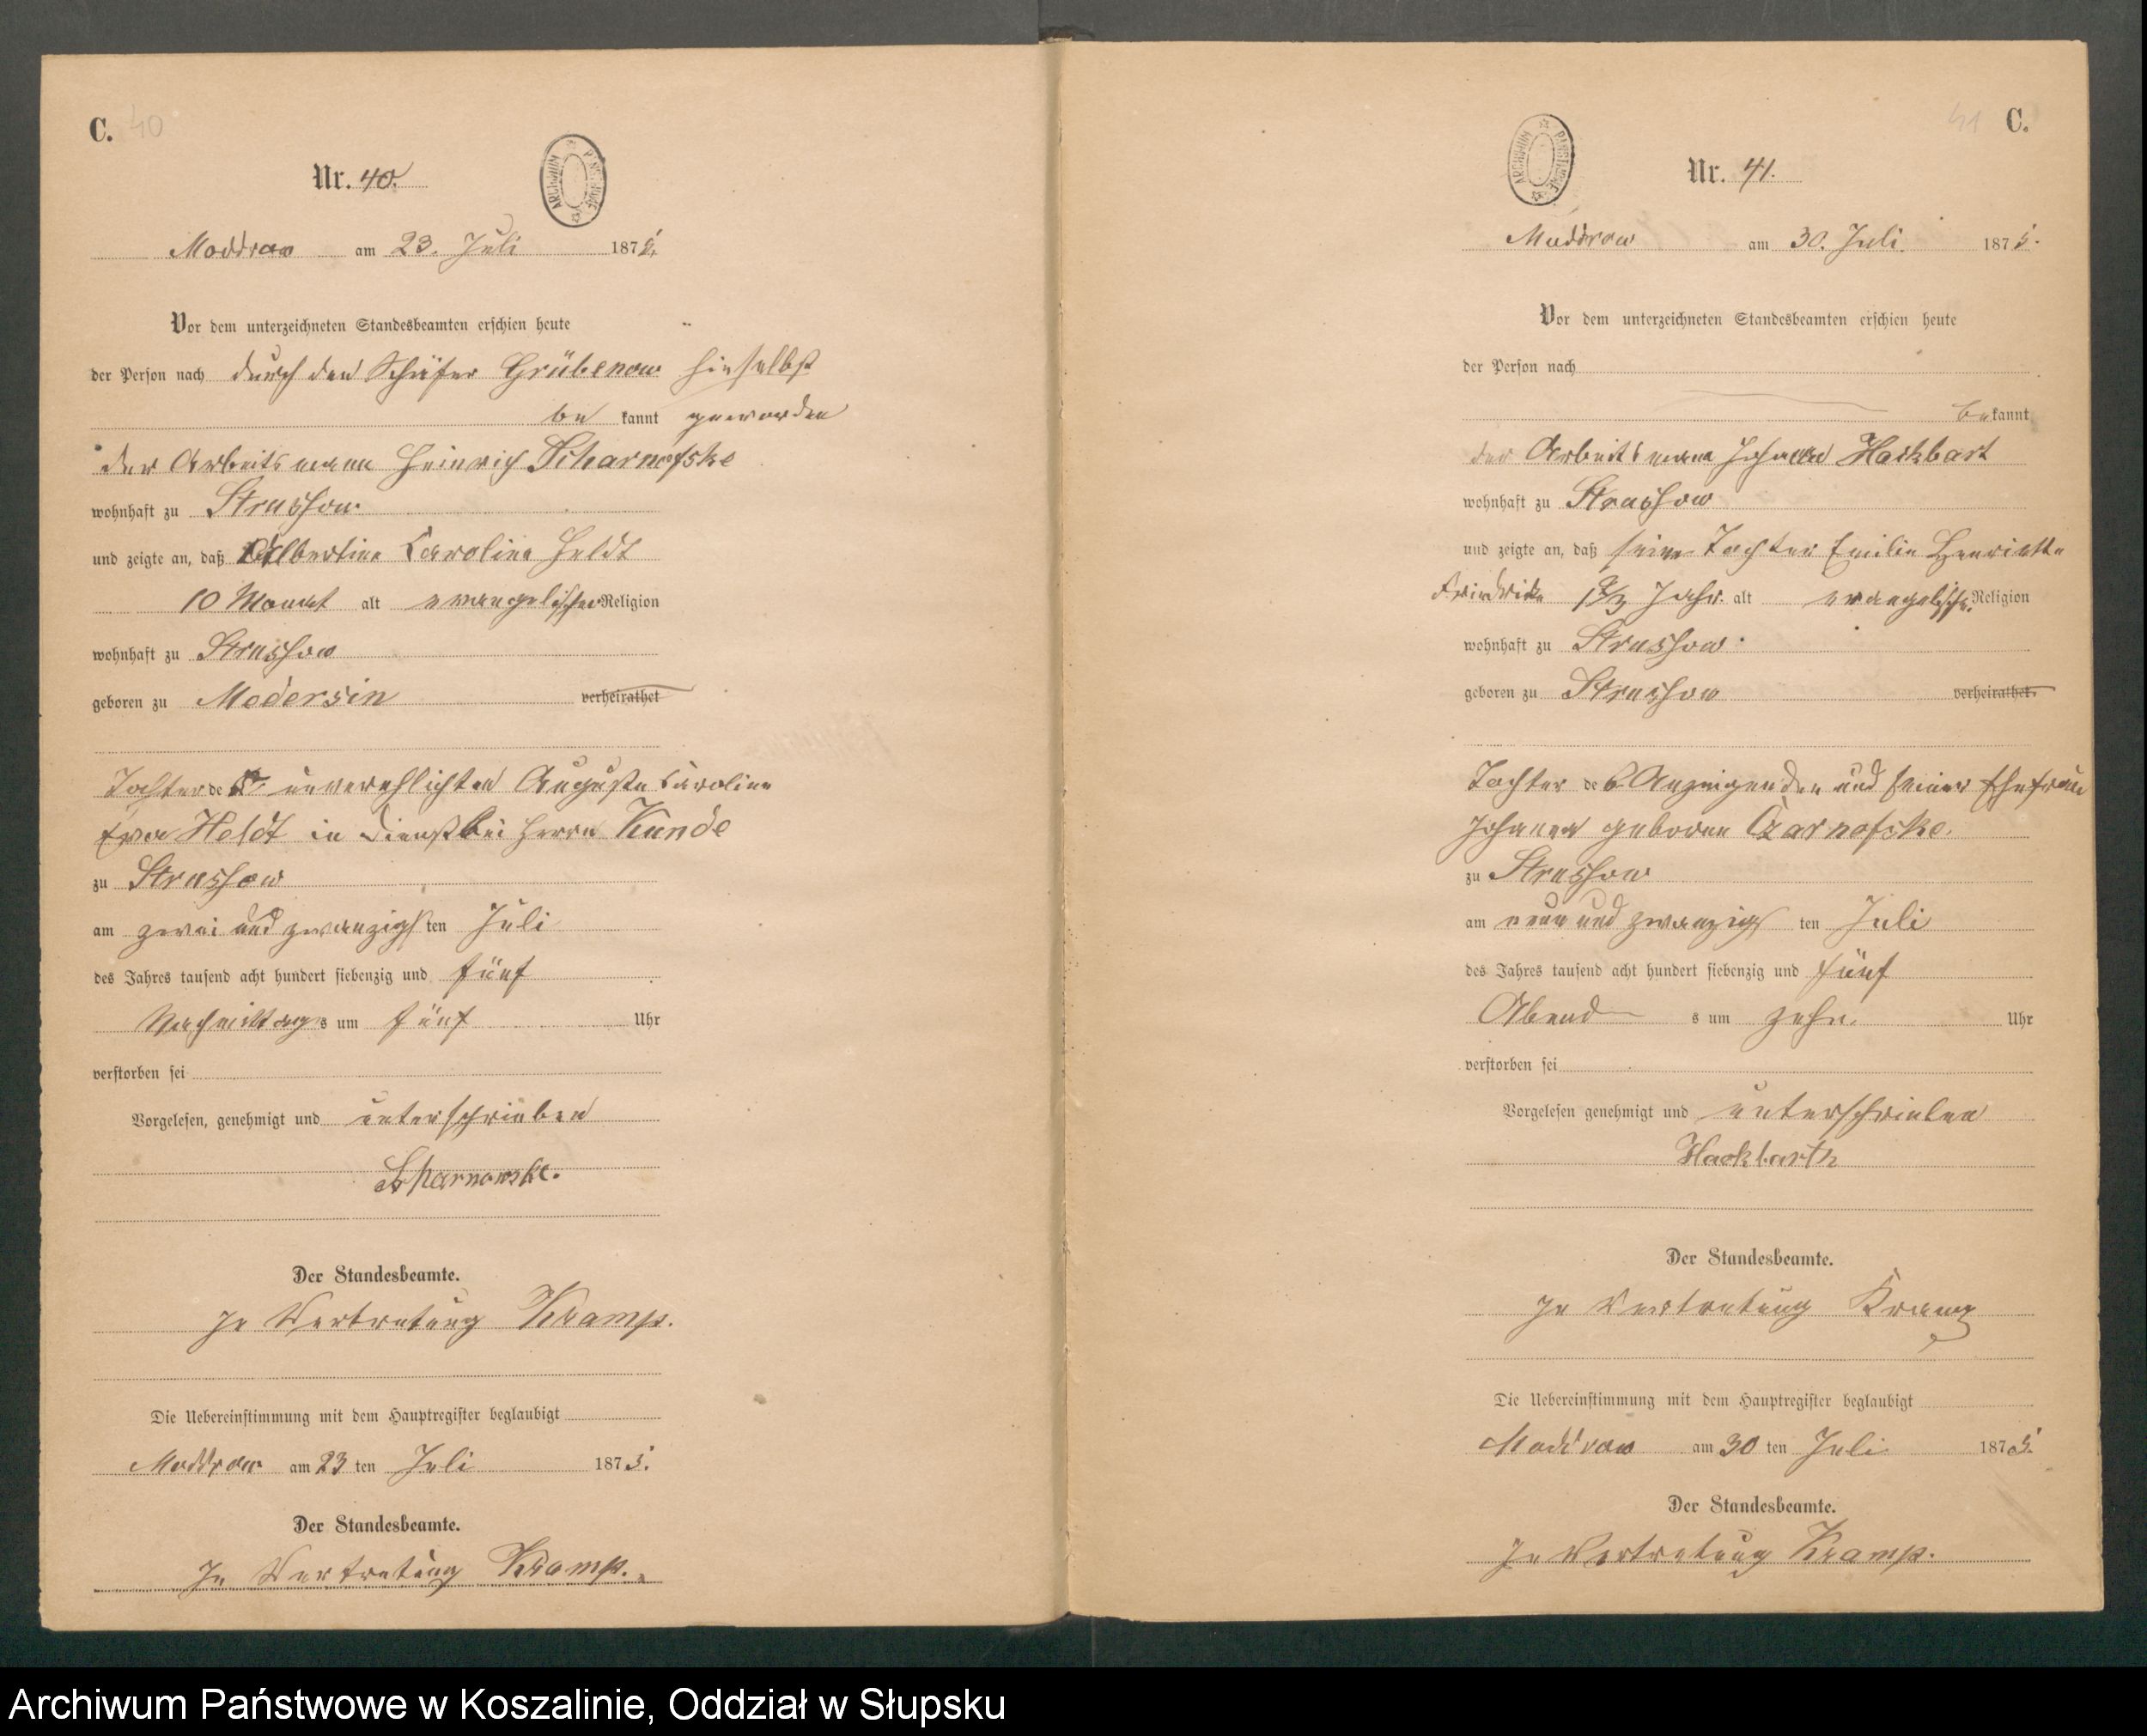 C. 40
Nr. 40.
ARCHIWUM PAŃSTWOWE
Moddrow am 23. Juli 1875.
Vor dem unterzeichneten Standesbeamten erschien heute
der Person nach durch den Schäfer Grübenow hieselbst
be kannt geworden
der Arbeitsmann Heinrich Scharnofske
wohnhaft zu Strussow
und zeigte an, daß Albertine Caroline Heldt
10 Monat alt evangelischer Religion
wohnhaft zu Strussow
geboren zu Modersin verheirathet
Tochter de r unverehlichten Auguste Caroline
Heldt in Dienst bei Herrn Kunde
zu Strussow
am zwei und zwanzigsten Juli
des Jahres tausend acht hundert siebenzig und fünf
Nachmittags um fünf Uhr
verstorben sei
Vorgelesen, genehmigt und unterschrieben
Scharnowske.
Der Standesbeamte.
In Vertretung Kramp.
Die Uebereinstimmung mit dem Hauptregister beglaubigt
Moddrow am 23 ten Juli 1875.
Der Standesbeamte.
In Vertretung Kramp.
41 C.
Nr. 41.
ARCHIWUM PAŃSTWOWE
Moddrow am 30. Juli 1875.
Vor dem unterzeichneten Standesbeamten erschien heute
der Person nach
bekannt
der Arbeitsmann Johann Hackbart
wohnhaft zu Strussow
und zeigte an, daß seine Tochter Emilie Henriette
Friedrike Jahr alt evangelischer Religion
wohnhaft zu Strussow
geboren zu Strussow verheirathet
Tochter des Anzeigenden und seiner Ehefrau
Johanna geborne Czarnofske.
zu Strussow
am neun und zwanzigsten Juli
des Jahres tausend acht hundert siebenzig und fünf
Abends um zehn Uhr
verstorben sei
Vorgelesen genehmigt und unterschrieben
Hackbarth
Der Standesbeamte.
In Vertretung Kramp
Die Uebereinstimmung mit dem Hauptregister beglaubigt
Moddrow am 30 ten Juli 1875.
Der Standesbeamte.
In Vertretung Kramp.
Archiwum Państwowe w Koszalinie, Oddział w Słupsku